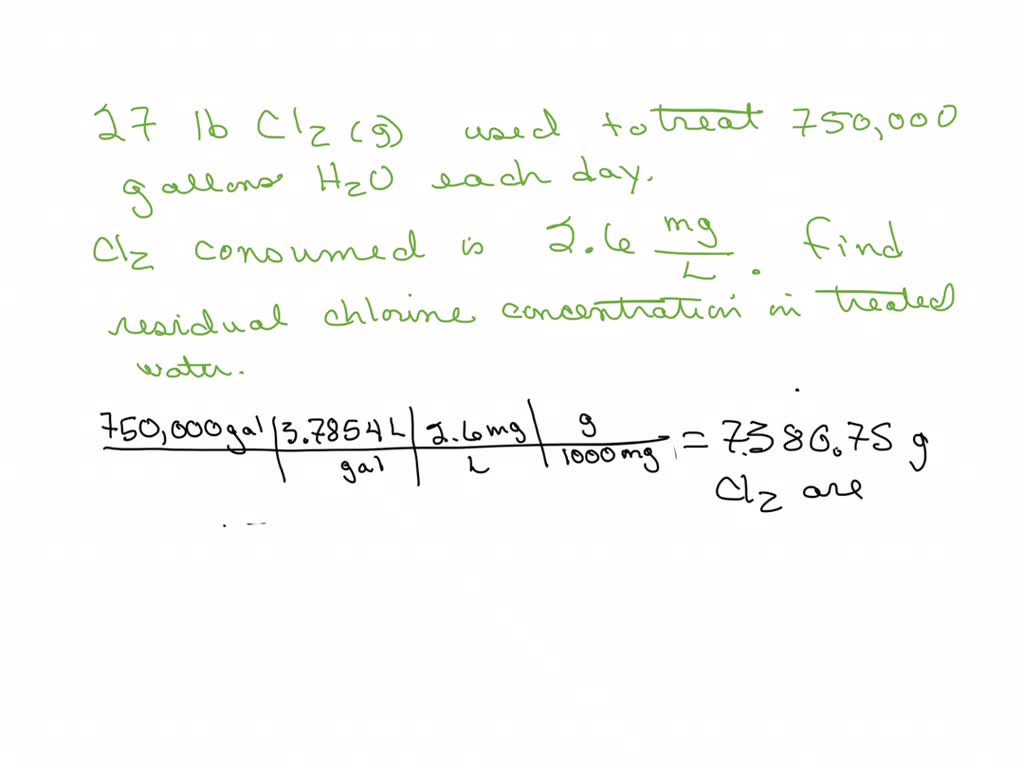 27 lb Cl2 (g) used to treat 750,000
gallons H2O each day.
Cl2 consumed is 2.6 mg/L. Find
residual chlorine concentration in treated
water.
750,000 gal | 3.7854 L | 2.6 mg | g = 7380.75 g
gal | L | 1000 mg
Cl2 are